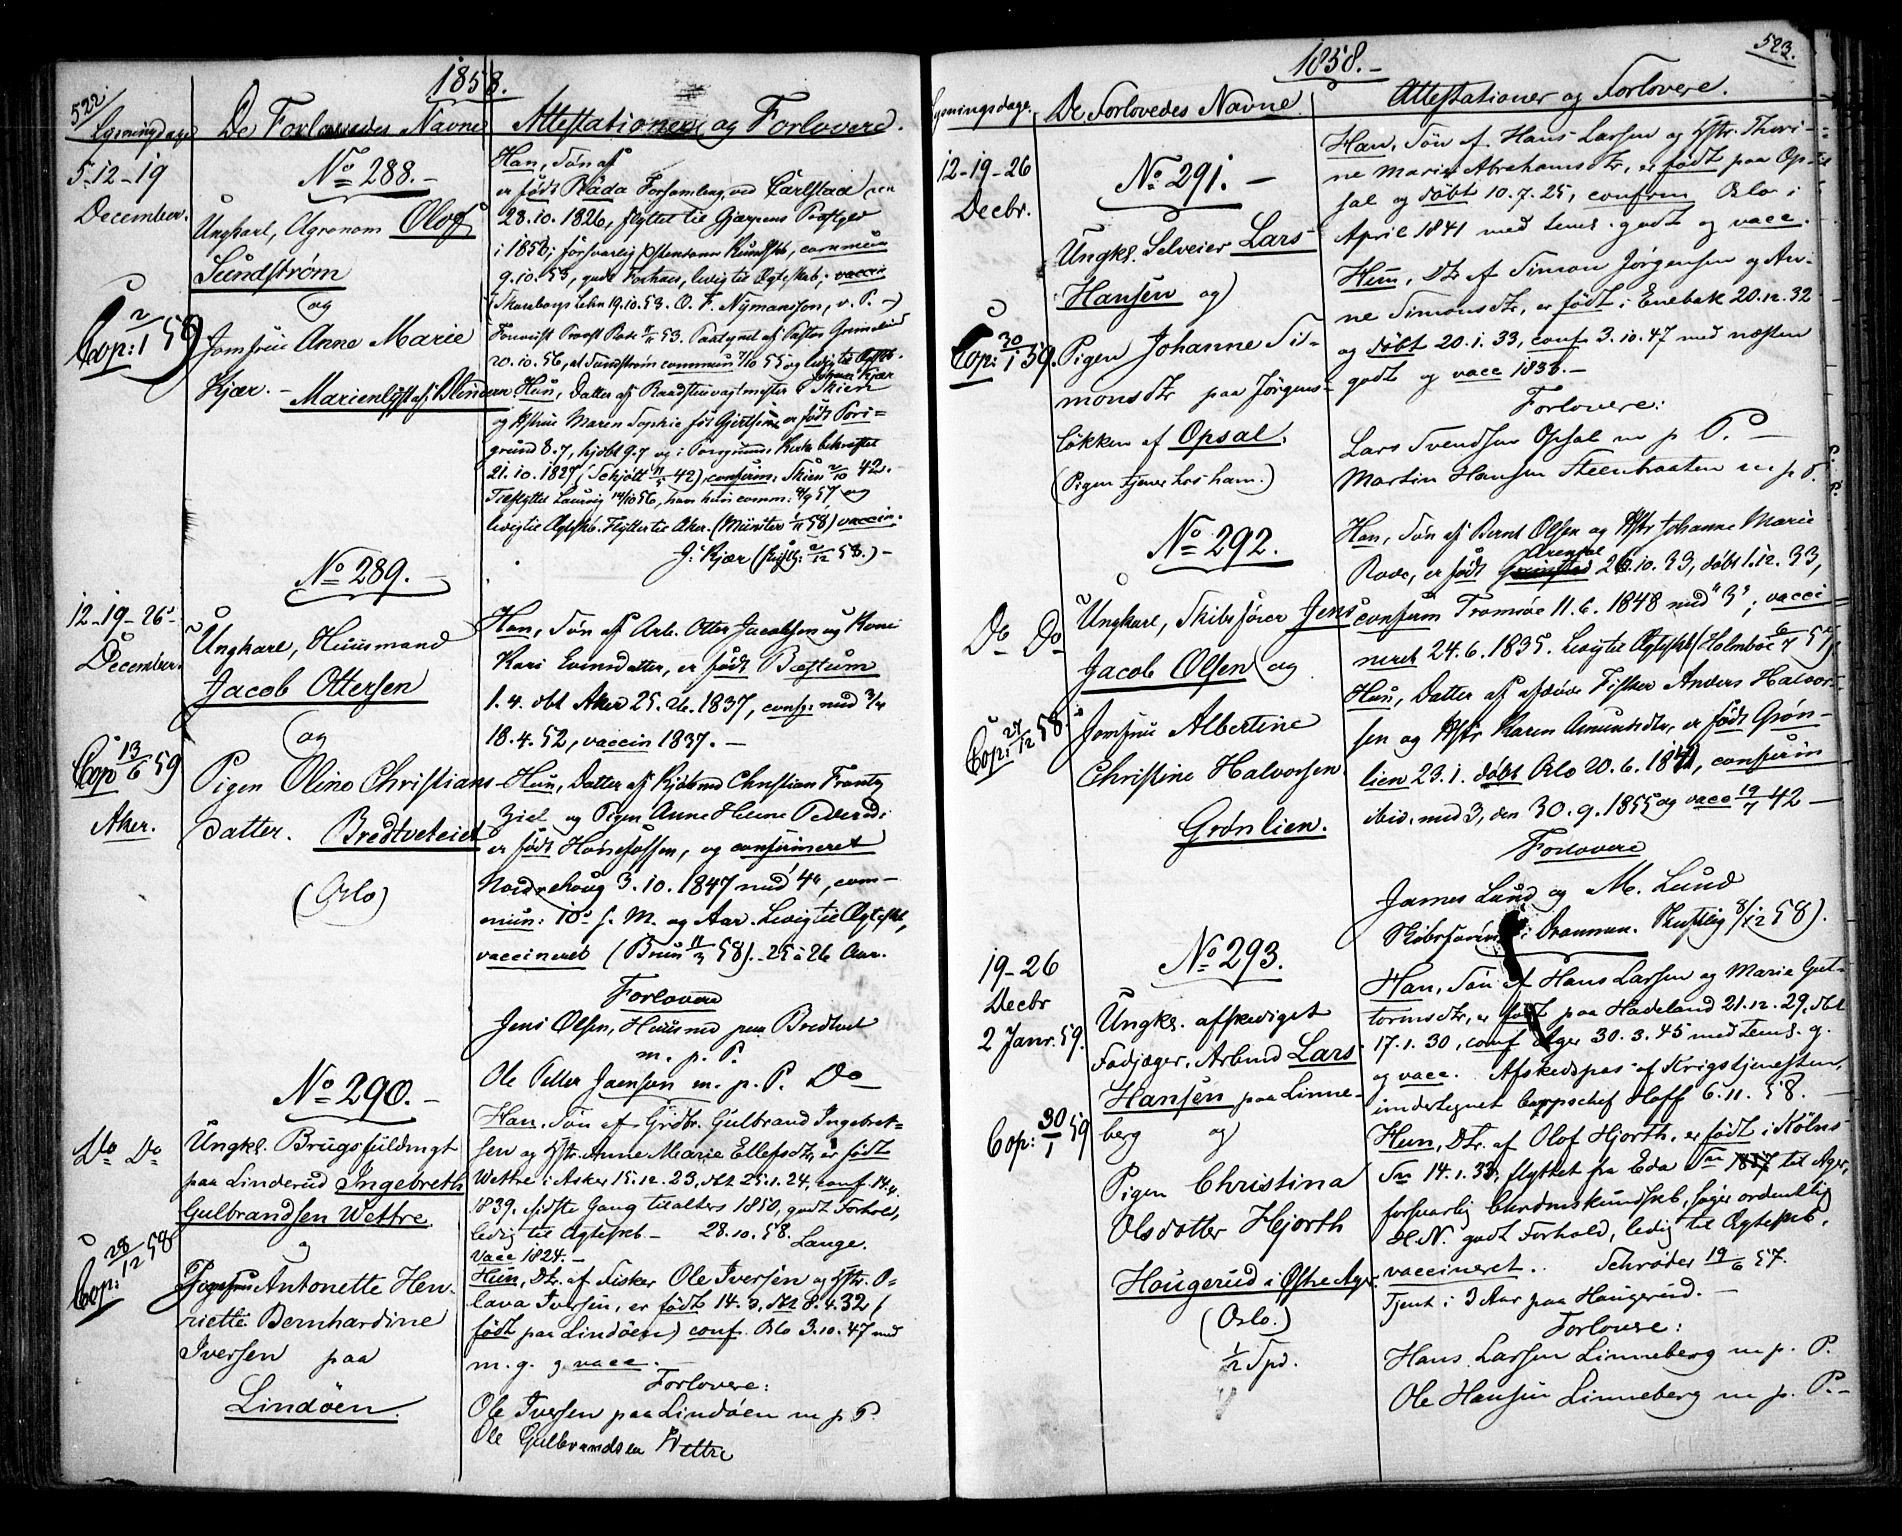 522.
1858.
Lysningsdage
De Forlovedes Navne
Attestationer og Forlovere.
5-12-19
December.
No 288.-
Ungkarl, Agronom Olof
Sundström
og
Cop: 2/1 59
Jomfrue Anne Marie
Kjær. - Marienlyst af Blindern
Han, Søn af
er født Råda Forsamling ved Carlstad
28.10.1826, flyttet til Gjerpens Præstgd
i 1856; forsvarlig Kundskb, commun
9.10.53, godt Forhold, ledig til Ægteskab; vaccin
(Skaraborgs Lehn 19.10.53. O. F. Nymansson, v. P.-)
20.10.56, at Sundstrøm commun 7/10 55 og ledig til Ægtsk.
Hun, Datter af Johan Kjær Skien
og Hstrue Maren Sophie født Gjertsen er født Pors-
grund 8.7, hjdøbt 9.7 og i Porsgrunds Kirke bekræftet
21.10.1827 (Schjøtt 11/5 42), confirm. Skien 2/10 42.
Tilflyttet Laurvig 14/10 56, har hun comm: 4/9 57 og
ledig til Ægtesk. Flytter til Aker. (Münster 1/11 58) vaccin.
J. Kjær (skriftlig: 2/12 58.)-
No 289.-
12-19-26
December.
Ungkarl, Huusmand
Jacob Ottersen
og
Cop 13/6 59
Aker.
Pigen Oline Christians-
datter. Bredtveteiet
(Oslo)
Han, Søn af Arb. Otter Jacobsen og Kone
Kari Evensdatter, er født Bæstum
1.4. dbt Aker 25.26.1837, conf: med 3/4
18.4.52, vaccin 1837.-
Hun, Datter af Kjøbmd Christian Frantz
Ziel og Pigen Anne Helene Pedersd:
er født Hønefossen, og confirmeret
Norderhoug 3.10.1847 med 4, com-
mun: 10 s. M. og Aar. Ledig til Ægtesk,
vaccineret (Bruun 11/3 58).- 25 à 26 Aar.
Forlovere
Jens Olsen, Huusmd paa Bredtvet
m. p. P.
Ole Petter Jacnson m. p. P. Do
No 290.-
Do Do
Ungkl. Brugsfuldmgt
paa Linderud Ingebreth
Gulbrandsen Wettre.
Cop: 28/12 58
Antonette Hen-
riette Bernhardine
Iversen paa
Lindöen.
Han, Søn af Grdbr. Gulbrand Ingebret-
sen og Hstr. Anne Marie Ellefsdtr, er født
Wettre i Asker 15.12.23, dbt 25.1.24, conf. 14.4.
1839. sidste Gang tilalters 1850, godt Forhold,
ledig til Ægteskb - 28.10.58. Lange.
vacc 1824.-
Hun, Dtr. af Fisker Ole Iversen og Hstr. O-
lava Iversen, er født 14.3. dbt 8.4.32 (
født paa Lindöen) conf. Oslo 3.10.47 med
m. g. og vacc.
Forlovere:
Ole Iversen paa Lindöen m p P.
Ole Gulbrandsen Wettre
523.
1858.-
Lysningsdage.
De Forlovedes Navne
Attestationer og Forlovere.
12-19-26
Decbr.
No 291.-
Ungkl. Selveier Lars
Hansen og
Cop: 30/1 59.
Pigen Johanne Si-
monsdtr paa Jörgens-
løkken af Opsal.
(Pigen tjener hos ham.)
Han, Søn af Hans Larsen og Hstr. Thori-
ne Marie Abrahamsdtr, er født paa Op-
sal og døbt 10.7.25, confirm Oslo i
April 1841 med temml. godt og vacc.
Hun, Dtr. af Simon Jörgensen og An-
ne Simonsdtr, er født i Enebak 20.12.32
og døbt 20.1.33, conf 3.10.47 med næsten
godt og vacc 1838.-
Forlovere:
Lars Svendsen Opsal m p P.-
Martin Hansen Steenbraaten m p P.
No 292.
Do Do
Ungkarl, Skibsfører Jens
Jacob Olsen og
Cop: 27/12 58.
Jomfrue Albertine
Christine Halvorsen.
Grønlien.
Han, Søn af Bernt Olsen og Hstr Johanne Marie
Rode, er født Grimstad Arendal 26.10.33, døbt 1.12.33,
confirm Tromsöe 11.6.1848 med "3"; vacci
neret 24.6.1835. Ledig til Ægteskb (Holmboe 6/7 57),
Hun, Datter af afdøde Fisker Anders Halvor-
sen og Hstr Karen Amundsdtr, er født Grøn-
lien 23.1. døbt Oslo 20.6.1841, confirm
ibid. med 3, den 30.9.1855 og vacc 19/7 42 -
Forlovere
James Lund og M. Lund
Skibsførere i Drammen. Skriftlig 8/12 58).
No 293.
19-26
Decbr
2 Janr. 59.
Ungkl. afskediget
Fodjæger, Arbmd Lars
Hansen paa Linne-
berg og
Cop: 30/1 59
Pigen Christina
Olsdotter Hjorth
Haugerud i Østre Ager.
(Oslo.)
1/2 Spd.
Han, Søn af Hans Larsen og Marie Gut-
tormsdtr, er født paa Hadeland 21.12.29, dbt
17.1.30, conf Ager 30.3.45 med teml. g.
og vacc. Afskedspas af Krigstjenesten,
undertegnet Corpschef Hoff 6.11.58.-
Hun, Dtr. af Olof Hjorth, er født i Kölns-
Sn 14.1.33, flyttet fra Eda Sn 1857 til Ager,
forsvarlig Chrdomskundskb, søger ordentlig
H. N. godt Forhold, ledig til Ægteskb,
vaccineret. Schrøder 19/6 57.
Tjent i 3 Aar paa Haugerud.-
Forlovere:
Hans Larsen Linneberg m p. P.
Ole Hansen Linneberg m p. P.-